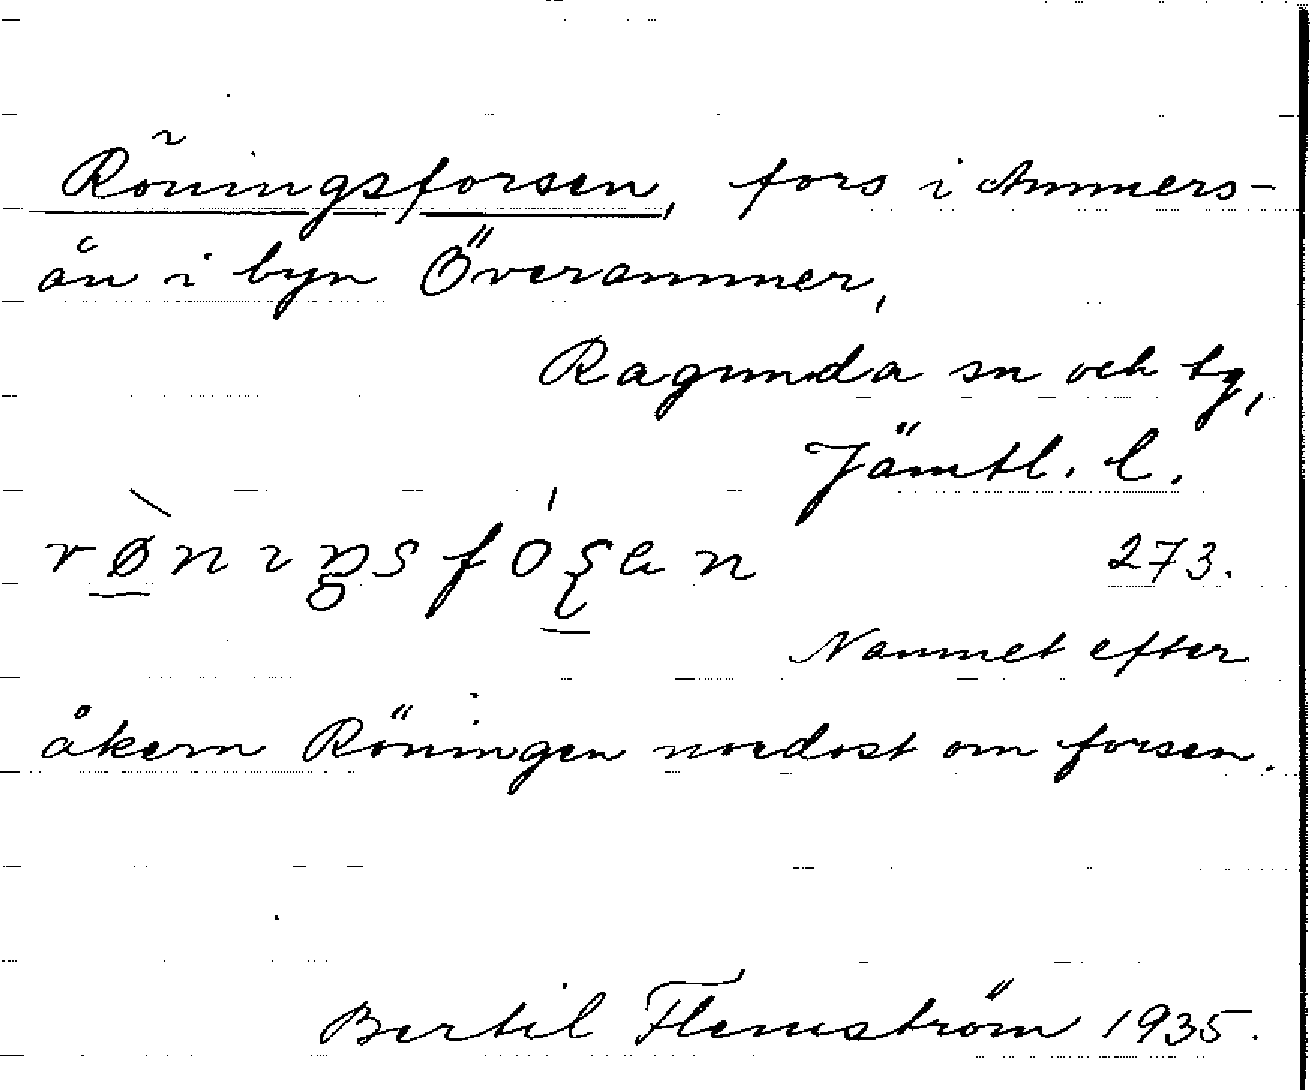 Röningsforsen, fors i Ammers-
ån i byn Överammer,
Ragunda sn och tg,
Jämtl. l.
273.
Namnet efter
åkern Röningen nordost om forsen.
Bertil Flemström 1935.